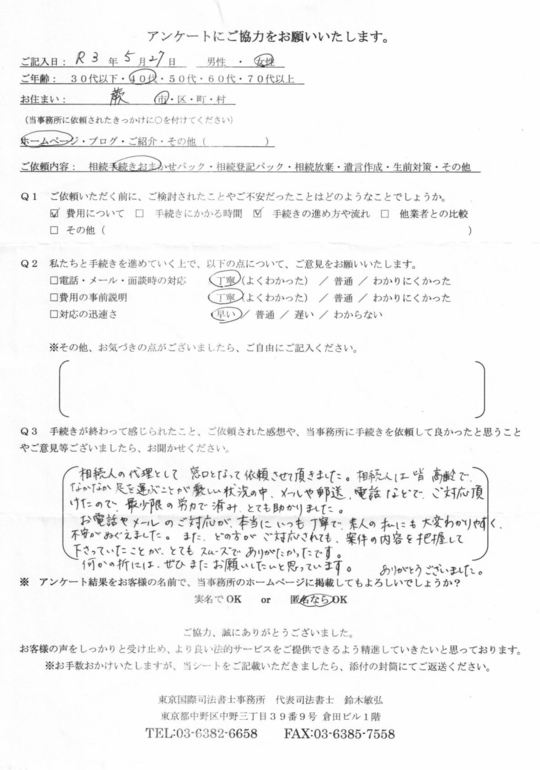 アンケートにご協力をお願いいたします。
ご記入日： R3 年 5 月 27 日　男性 ・ 女性
ご年齢： 30代以下・40代・50代・60代・70代以上
お住まい： 蕨 市・区・町・村
（当事務所に依頼されたきっかけに○を付けてください）
ホームページ・ブログ・ご紹介・その他（　　　　　）
ご依頼内容： 相続手続きおまかせパック・相続登記パック・相続放棄・遺言作成・生前対策・その他
Q1　ご依頼いただく前に、ご検討されたことやご不安だったことはどのようなことでしょうか。
☑ 費用について　□ 手続きにかかる時間　☑ 手続きの進め方や流れ　□ 他業者との比較
□ その他（　　　　　）
Q2　私たちと手続きを進めていく上で、以下の点について、ご意見をお願いいたします。
□電話・メール・面談時の対応　丁寧（よくわかった）／ 普通 ／ わかりにくかった
□費用の事前説明　丁寧（よくわかった）／ 普通 ／ わかりにくかった
□対応の迅速さ　早い ／ 普通 ／ 遅い ／ わからない
※その他、お気づきの点がございましたら、ご自由にご記入ください。
Q3　手続きが終わって感じられたこと、ご依頼された感想や、当事務所に手続きを依頼して良かったと思うこと
やご意見等ございましたら、お聞かせください。
相続人の代理として 窓口となって依頼させて頂きました。相続人は皆 高齢で、
なかなか足を運ぶことが難しい状況の中、メールや郵送、電話などで、ご対応頂
けたので、最少限の労力で済み、とても助かりました。
お電話やメールのご対応が、本当にいつも丁寧で、素人の私にも大変わかりやすく、
不安がぬぐえました。また、どの方がご対応されても、案件の内容を把握して
下さっていたことが、とてもスムーズでありがたかったです。
何かの折には、ぜひまたお願いしたいと思っています。　ありがとうございました。
※ アンケート結果をお客様の名前で、当事務所のホームページに掲載してもよろしいでしょうか？
実名でOK　or　匿名ならOK
ご協力、誠にありがとうございました。
お客様の声をしっかりと受け止め、より良い法的サービスをご提供できるよう精進していきたいと思っております。
※お手数おかけいたしますが、当シートをご記載いただきましたら、添付の封筒にてご返送ください。
東京国際司法書士事務所　代表司法書士　鈴木敏弘
東京都中野区中野三丁目39番9号 倉田ビル1階
TEL:03-6382-6658　FAX:03-6385-7558